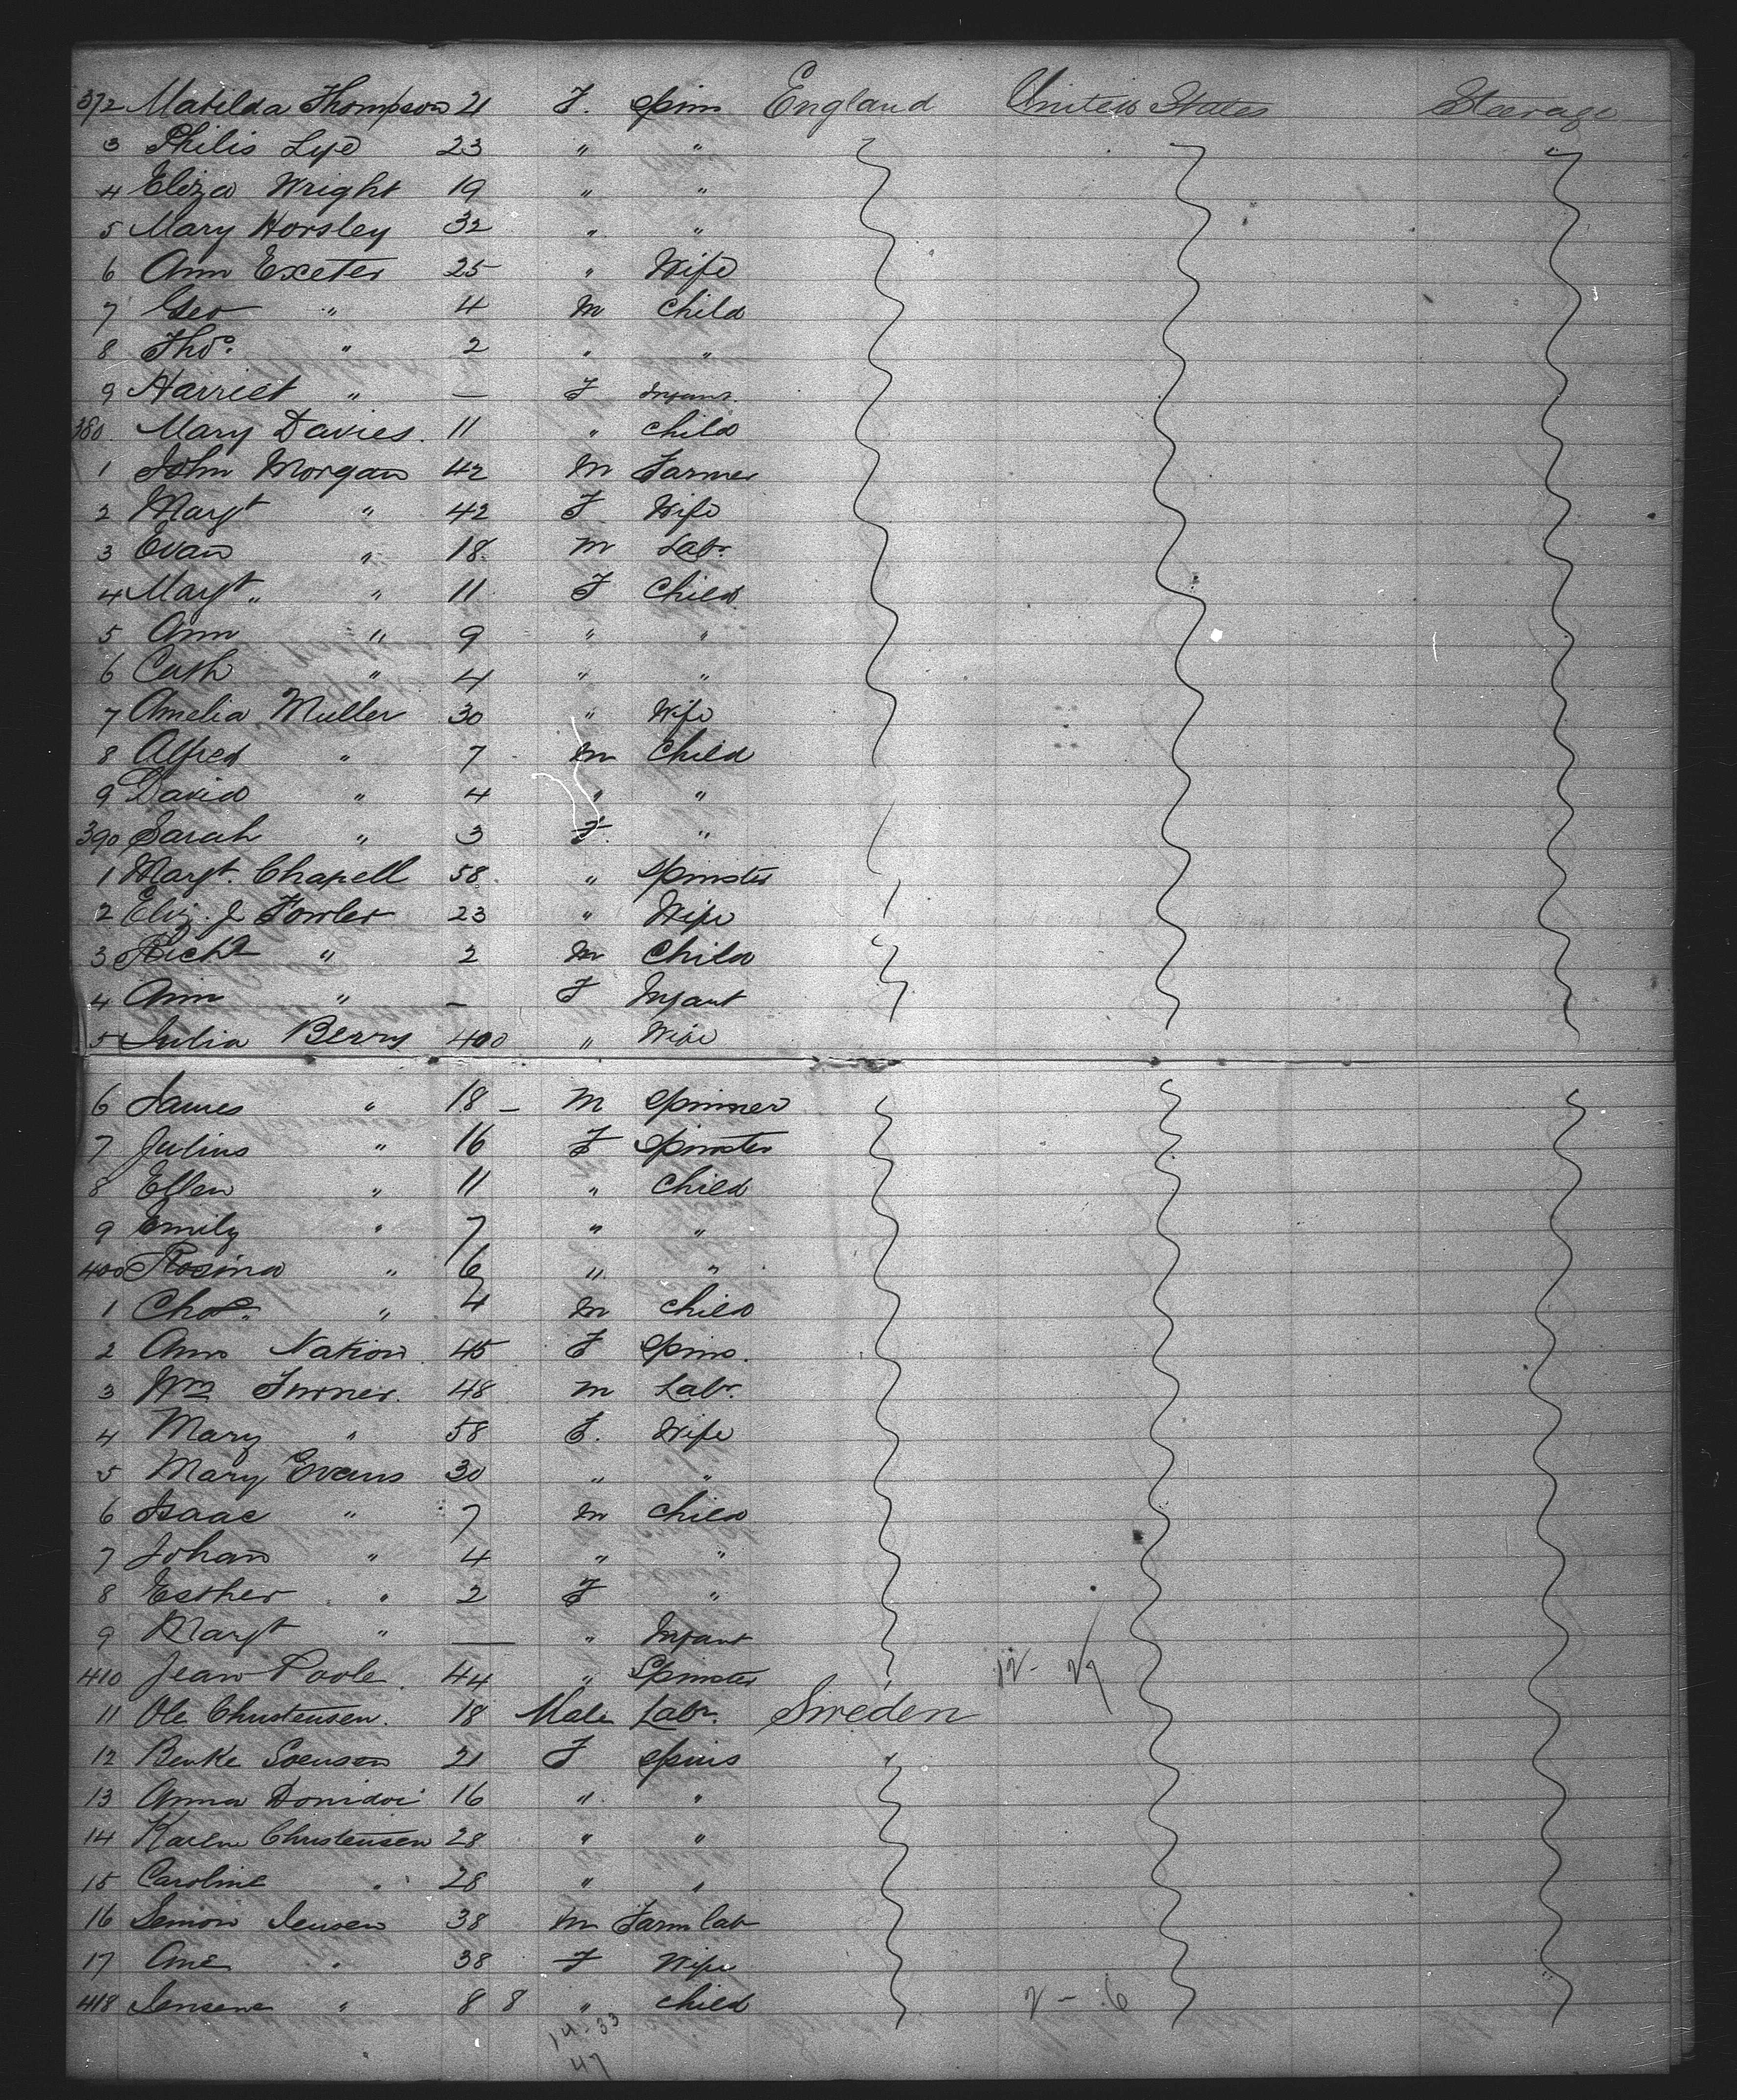 372 Matilda Thompson 21 F. Spins England United States Steerage
3 Philis Lye 23 " "
4 Eliza Wright 19 " "
5 Mary Horsley 32 " "
6 Ann Exeter 25 " Wife
7 Geo " 4 M Child
8 Thos. " 2 " "
9 Harriet " — F Infant
380. Mary Davies. 11 " Child
1 John Morgan 42 M Farmer
2 Margt " 42 F Wife
3 Evan " 18. M Labr
4 Margt " " 11 F Child
5 Ann " 9 " "
6 Cath " 4 " "
7 Amelia Muller 30 " Wife
8 Alfred " 7 M Child
9 David " 4 " "
390 Sarah " 3 F. "
1 Margt. Chapell 58. " Spinster
2 Eliz. J Fowler 23 " Wife
3 Richd " 2 M Child
4 Ann " — F Infant
5 Julia Berry 400 " Wife
6 James " 18 — M Spinner
7 Julius " 16 F Spinster
8 Ellen " 11 " Child
9 Emily " 7 " "
400 Rosina " 6 " "
1 Chas. " 4 M Child
2 Ann Nation 45 F Spins.
3 Wm Turner. 48 M Labr.
4 Mary " 58 F. Wife
5 Mary Evans 30 " "
6 Isaac " 7 M Child
7 Johan " 4 " "
8 Esther " 2 F "
9 Margt " — " Infant
410 Jean Poole. 44 " Spinster 12 - 29
11 Ole Christensen. 18 Male Labr. Sweden
12 Benke Soensen 21 F Spins
13 Anna 16 " "
14 Karen Christensen 28 " "
15 Caroline " 28 " "
16 Semion Jensen 38 M Farm lab
17 Ane " 38 F Wife
418 Jensene " 8 8 " Child 2 - 6
14-33
47